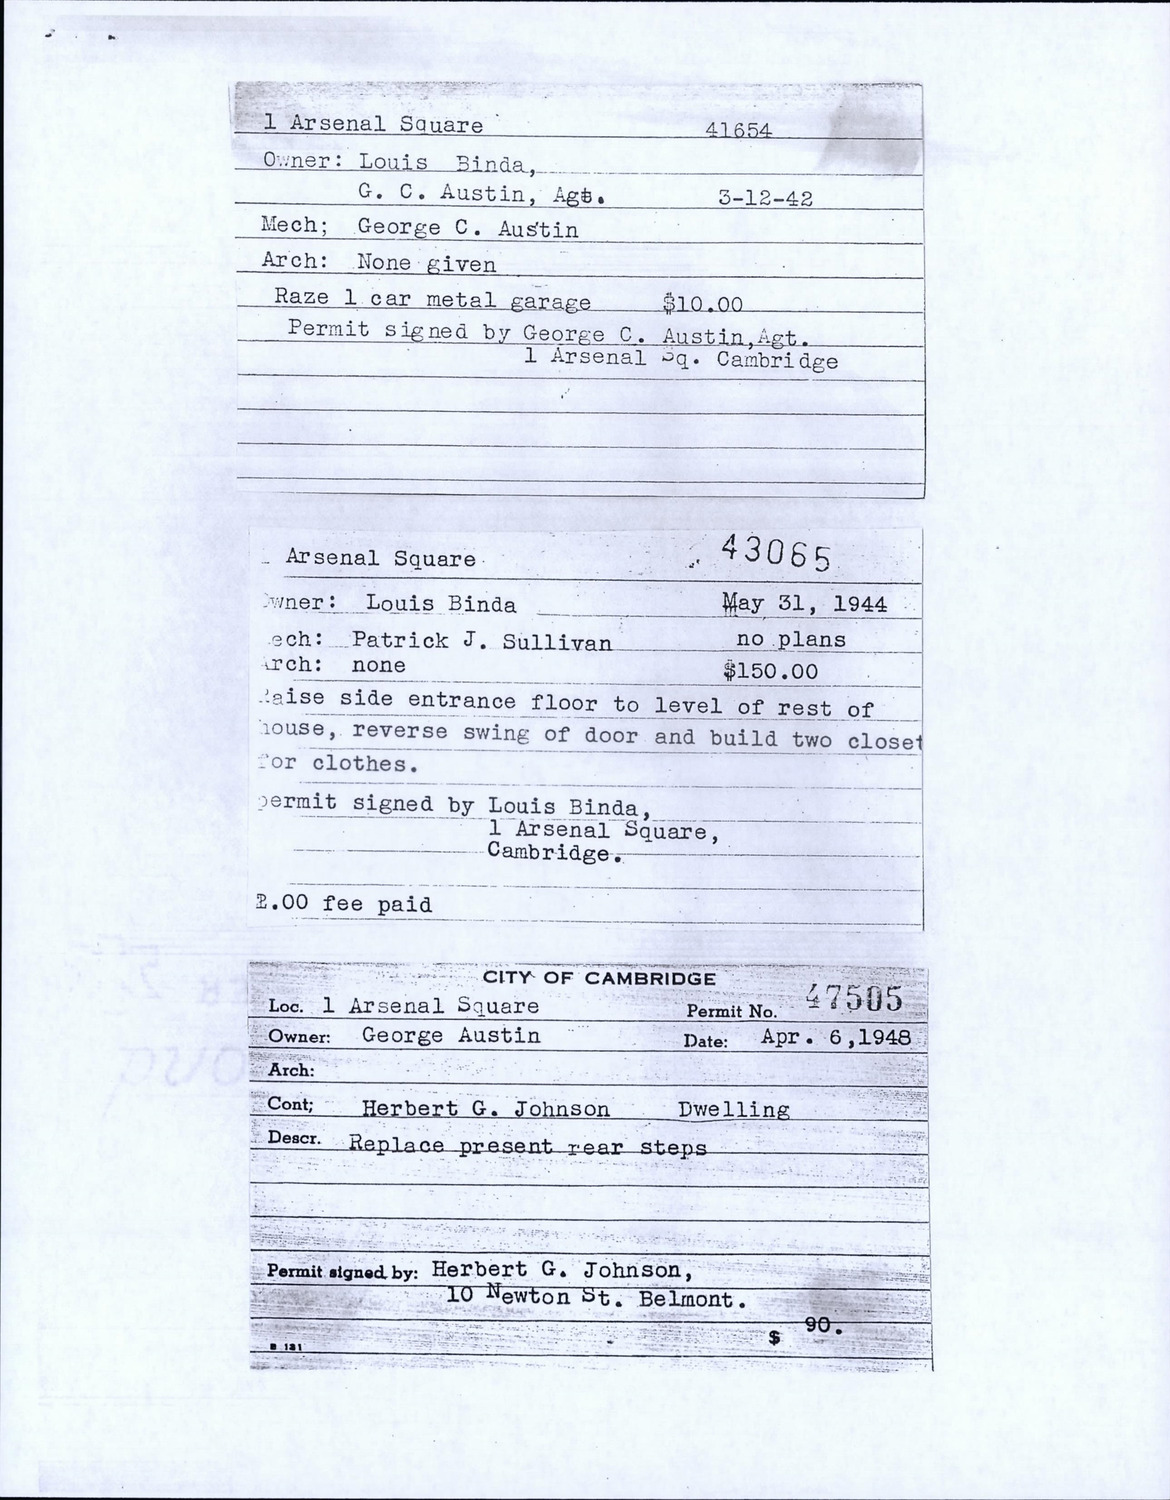 1 Arsenal Square 41654
Owner: Louis Binda,
G. C. Austin, Agt. 3-12-42
Mech; George C. Austin
Arch: None given
Raze 1 car metal garage $10.00
Permit signed by George C. Austin,Agt.
1 Arsenal Sq. Cambridge
Arsenal Square 43065
wner: Louis Binda May 31, 1944
ech: Patrick J. Sullivan no plans
rch: none $150.00
aise side entrance floor to level of rest of
house, reverse swing of door and build two closet
for clothes.
permit signed by Louis Binda,
1 Arsenal Square,
Cambridge.
.00 fee paid
CITY OF CAMBRIDGE
Loc. 1 Arsenal Square Permit No. 47505
Owner: George Austin Date: Apr. 6,1948
Arch:
Cont; Herbert G. Johnson Dwelling
Descr. Replace present rear steps
Permit signed by: Herbert G. Johnson,
10 Newton St. Belmont.
$ 90.
B 131